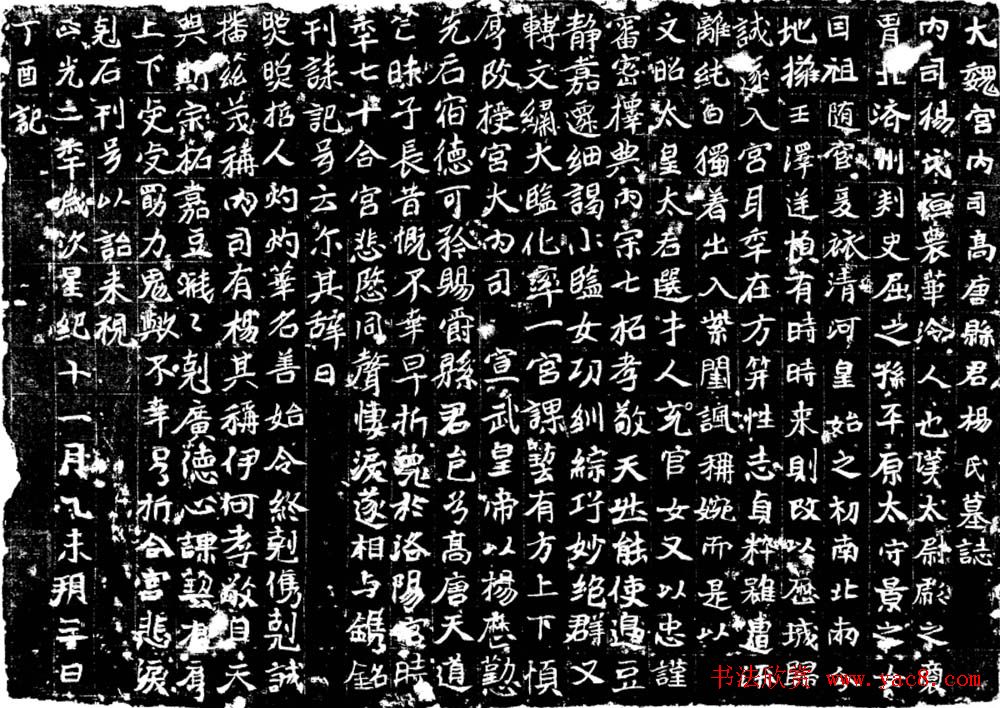 大魏宮內司高唐縣君楊氏墓誌
內司楊氏恒農華泠人也漢太尉彪之裔
胄北済州刾史屈之孫平原太守景之女
因祖随宦爰旅清河皇始之初南北両分
地擁王澤逆順有時時来則改以歷城歸
誠遂入宮耳年在方笄性志貞粹雖遭流
離純白獨著出入紫閨諷稱婉而是以
文昭太皇太后選才人充官女又以忠謹
審密擇典內宗七祏孝敬天然能使邊豆
静嘉遷細謁小監女功紃綜巧妙絶群又
轉文繡大監化率一宮課藝有方上下順
厚改授宮大內司 宣武皇帝以楊歷勤
先后宿德可矜賜爵縣君邑兮高唐天道
芒昧子長昔慨不幸早折薨於洛陽宮時
年七十合宮悲愍同聲悽淚遂相与鐫銘
刊誄記号云尔其辞曰
煚煚哲人灼灼華名善始令終剋儁剋誠
播兹茂稱內司有楊其稱伊何孝敬自天
典斯宗祏嘉豆濈濈剋廣德心課藝有方
上下安安勠力鬼歟不幸早折合宮悲淚
剋石刊号以詒来視
正光二年歲次星紀十一月乙未朔三日
丁酉記
书法欣赏 www.yac8.com